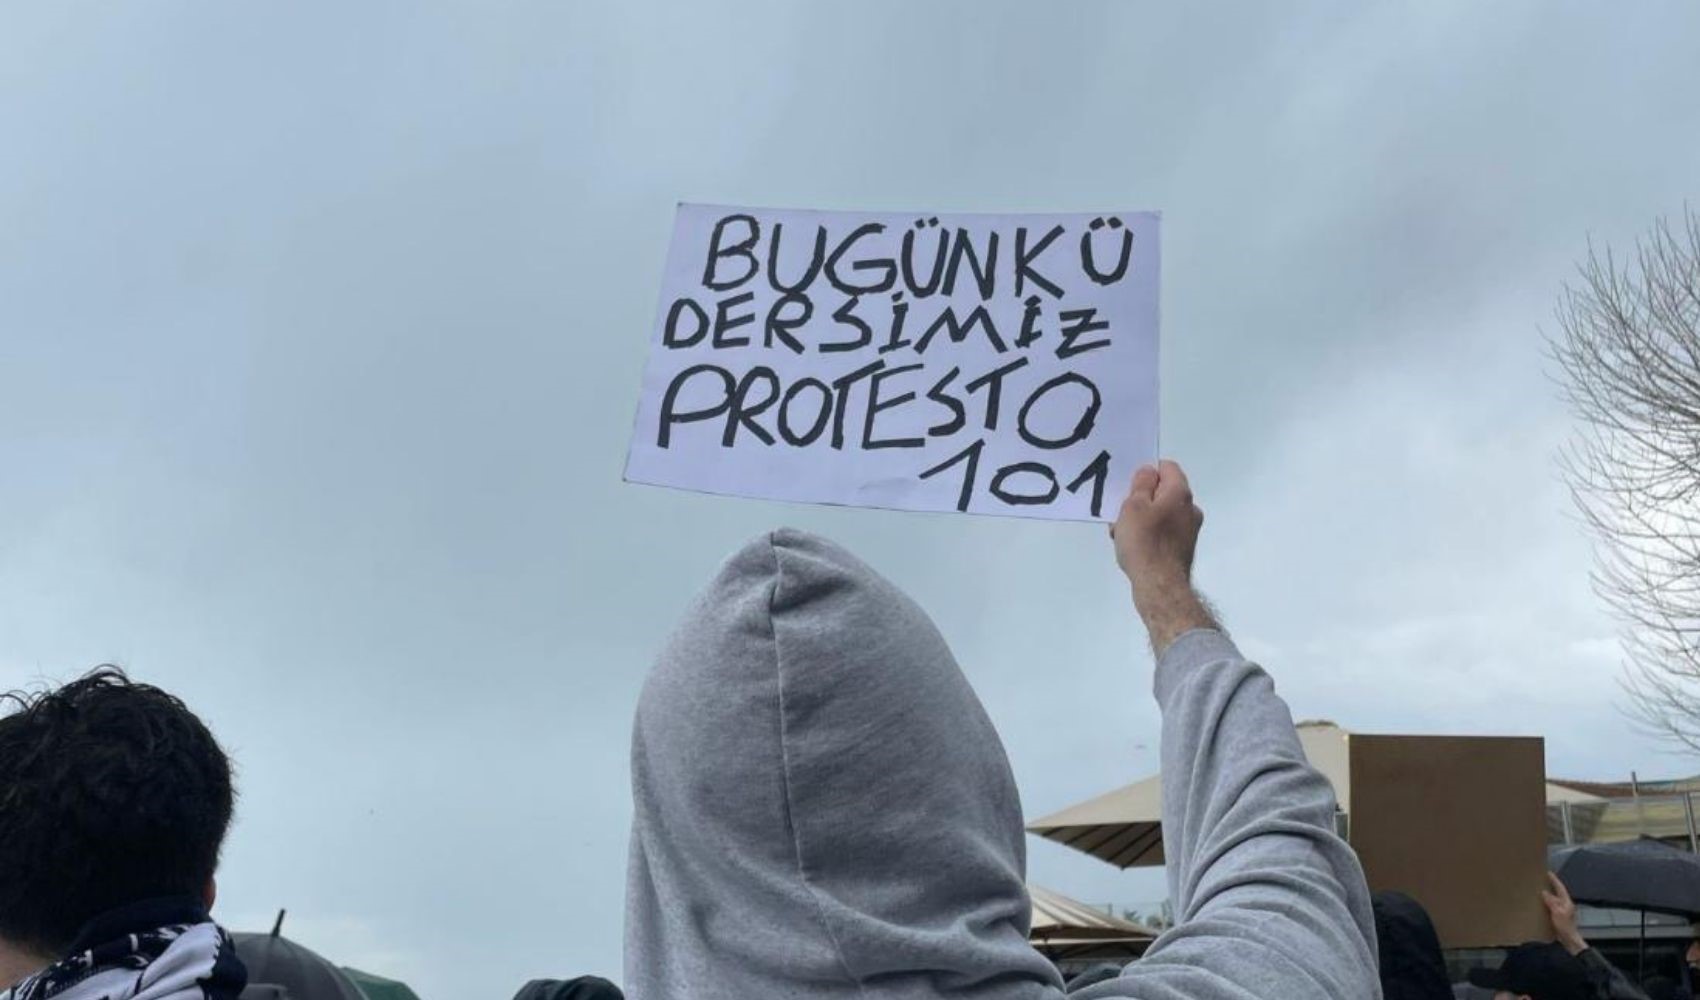 BUGÜNKÜ
DERSİMİZ
PROTESTO
101